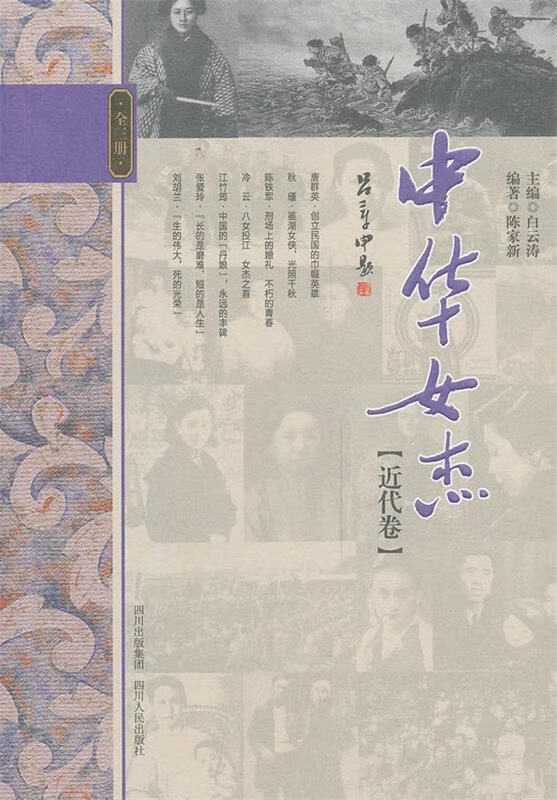 ·全三册·
主编◎白云涛
编著◎陈家新
中华女杰
【近代卷】
吕章申题
唐群英·创立民国的巾帼英雄
秋　瑾·鉴湖女侠，光照千秋
陈铁军·刑场上的婚礼　不朽的青春
冷　云·八女投江　女杰之首
江竹筠·中国的「丹娘」，永远的丰碑
张爱玲·「长的是磨难，短的是人生」
刘胡兰·「生的伟大，死的光荣」
四川出版集团　四川人民出版社